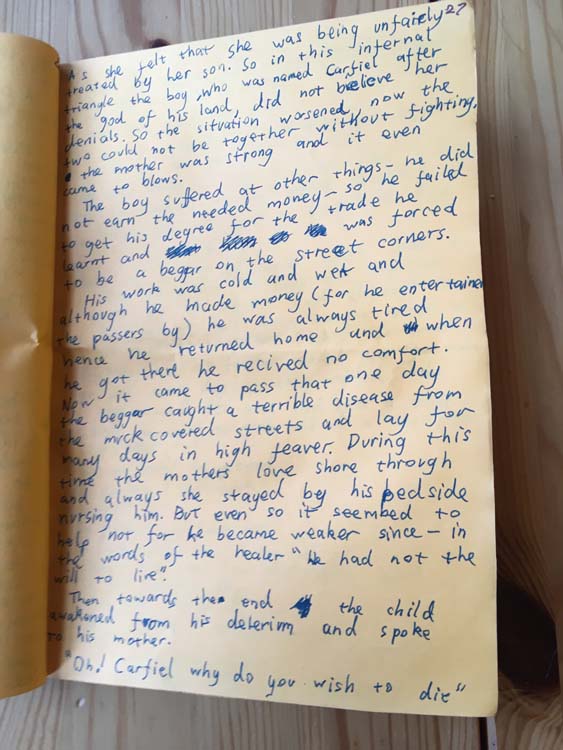 27
As she felt that she was being unfairly
treated by her son. So in this infernal
triangle the boy, who was named Carfiel after
the god of his land, did not believe her
denials. So the situation worsened, now the
two could not be together without fighting,
the mother was strong and it even
came to blows.
The boy suffered at other things - he did
not earn the needed money - so he failed
to get his degree for the trade he
learnt and was forced
to be a beggar on the street corners.
His work was cold and wet and
although he made money (for he entertained
the passers by) he was always tired
hence he returned home and when
he got there he recived no comfort.
Now it came to pass that one day
the beggar caught a terrible disease from
the muck covered streets and lay for
many days in high feaver. During this
time the mothers love shore through
and always she stayed by his bedside
nursing him. But even so it seembed to
help not for he became weaker since - in
the words of the healer "he had not the
will to live".
Then towards the end the child
awakened from his delerim and spoke
to his mother.
"Oh! Carfiel why do you wish to die"